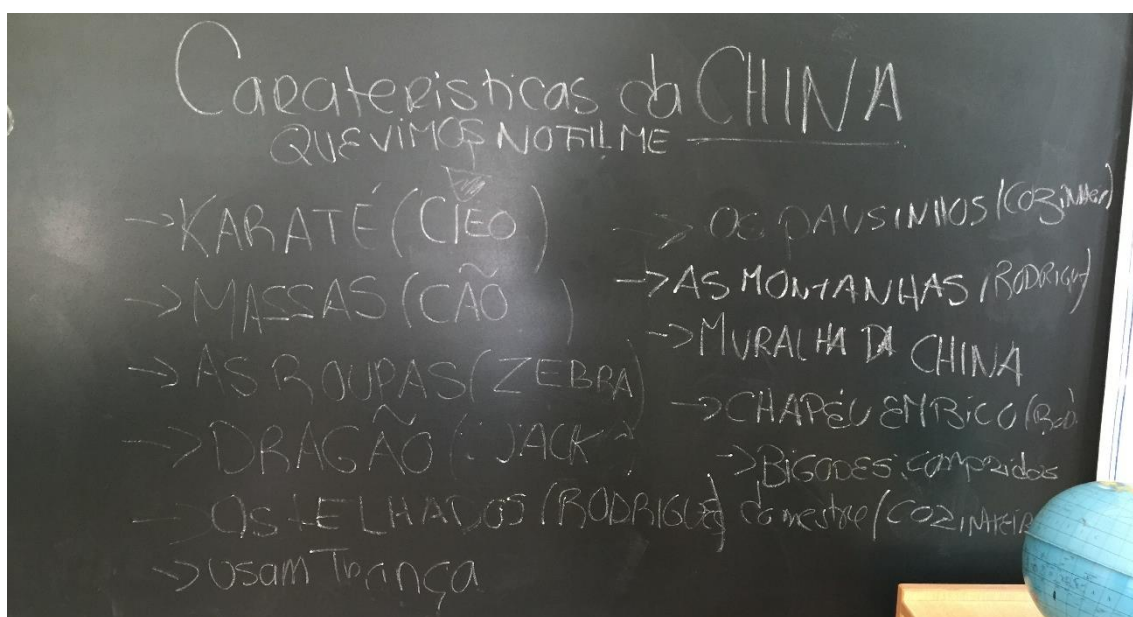 Carateristicas da CHINA
QUE VIMOS NO FILME
→ KARATÉ (CLEO)
→ MASSAS (CÃO)
→ AS ROUPAS (ZEBRA)
→ DRAGÃO (JACK)
→ OS TELHADOS (RODRIGUES)
→ USAM TRANÇA
→ OS PAUSINHOS (COZINHEIR)
→ AS MONTANHAS (RODRIGUES)
→ MURALHA DA CHINA
→ CHAPÉU EM BICO
→ BIGODES compridos
do mestre (COZINHEIRA